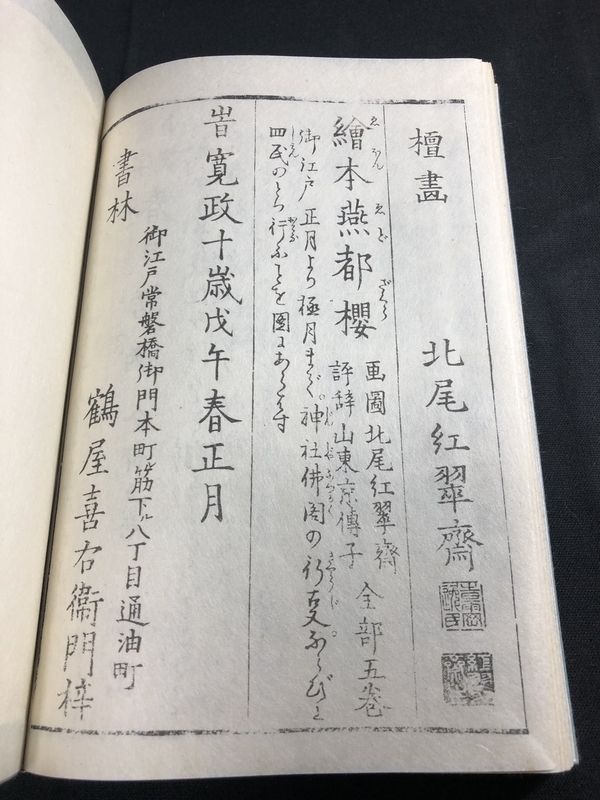 檀畫
北尾紅翠齋
繪本燕都櫻
ゑほんゑどざくら
画圖北尾紅翠齋
評辞山東京傳子
全部五巻
御江戸正月より極月まで神社佛閣の行事ならびに
四民のとり行ふことを圖にあらはす
旹寛政十歳戊午春正月
書林
御江戸常磐橋御門本町筋下ル八丁目通油町
鶴屋喜右衞門梓